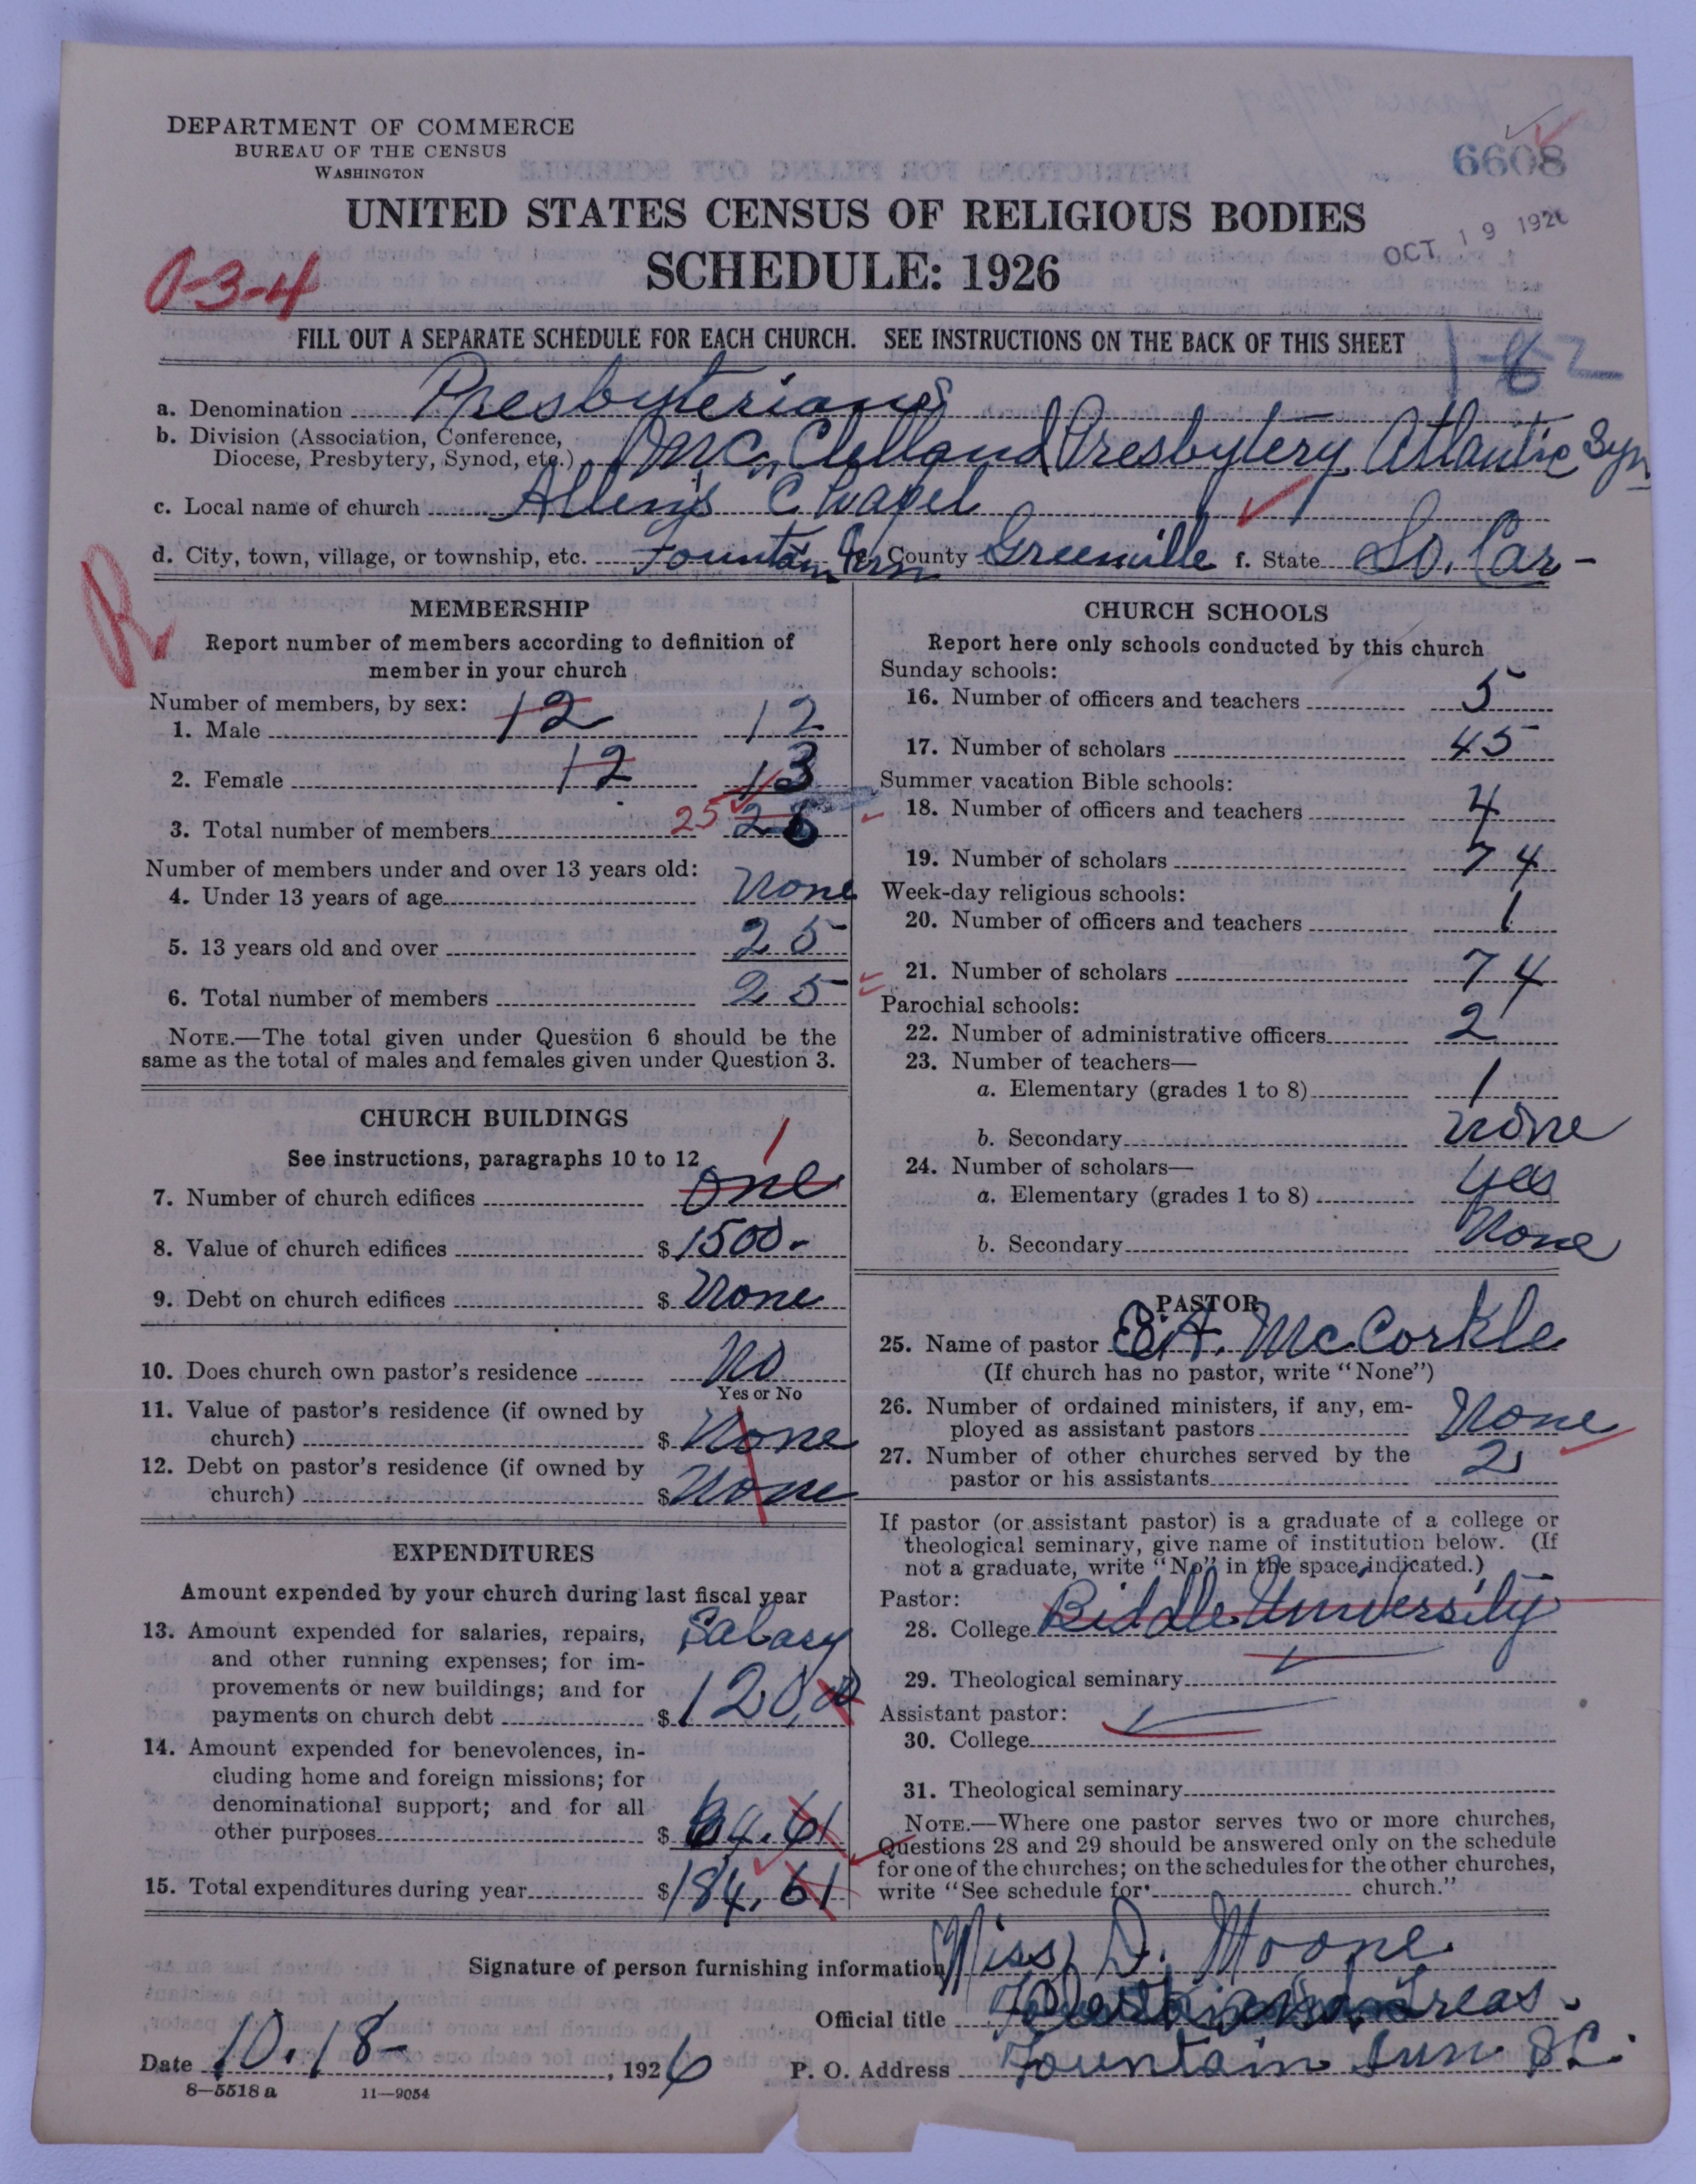 DEPARTMENT OF COMMERCE
BUREAU OF THE CENSUS
WASHINGTON
6608
UNITED STATES CENSUS OF RELIGIOUS BODIES
OCT 19 1926
SCHEDULE: 1926
0-3-4
FILL OUT A SEPARATE SCHEDULE FOR EACH CHURCH. SEE INSTRUCTIONS ON THE BACK OF THIS SHEET
a. Denomination Presbyterians
b. Division (Association, Conference, Diocese, Presbytery, Synod, etc.) McClelland Presbytery, Atlantic Syn
c. Local name of church Allen's Chapel
d. City, town, village, or township, etc. Fountain Inn County Greenville f. State So. Car-
R
MEMBERSHIP
Report number of members according to definition of
member in your church
Number of members, by sex:
1. Male 12 12
2. Female 12 13
3. Total number of members 25
Number of members under and over 13 years old:
4. Under 13 years of age None
5. 13 years old and over 25
6. Total number of members 25
NOTE.—The total given under Question 6 should be the
same as the total of males and females given under Question 3.
CHURCH BUILDINGS
See instructions, paragraphs 10 to 12
1
7. Number of church edifices one
8. Value of church edifices $1500-
9. Debt on church edifices $ None
10. Does church own pastor's residence No
Yes or No
11. Value of pastor's residence (if owned by
church) $ None
12. Debt on pastor's residence (if owned by
church) $ None
EXPENDITURES
Amount expended by your church during last fiscal year
13. Amount expended for salaries, repairs, Salary
and other running expenses; for im-
provements or new buildings; and for
payments on church debt $ 120,00
14. Amount expended for benevolences, in-
cluding home and foreign missions; for
denominational support; and for all
other purposes $ 64.61
15. Total expenditures during year $184.61
CHURCH SCHOOLS
Report here only schools conducted by this church
Sunday schools:
16. Number of officers and teachers 5
17. Number of scholars 45
Summer vacation Bible schools:
18. Number of officers and teachers 4
19. Number of scholars 74
Week-day religious schools:
20. Number of officers and teachers 1
21. Number of scholars 74
Parochial schools:
22. Number of administrative officers 2
23. Number of teachers—
a. Elementary (grades 1 to 8) 1
b. Secondary none
24. Number of scholars—
a. Elementary (grades 1 to 8) yes
b. Secondary None
PASTOR
25. Name of pastor E.A. McCorkle
(If church has no pastor, write "None")
26. Number of ordained ministers, if any, em-
ployed as assistant pastors None
27. Number of other churches served by the
pastor or his assistants 2
If pastor (or assistant pastor) is a graduate of a college or
theological seminary, give name of institution below. (If
not a graduate, write "No" in the space indicated.)
Pastor:
28. College Biddle University
29. Theological seminary
Assistant pastor:
30. College
31. Theological seminary
NOTE.—Where one pastor serves two or more churches,
Questions 28 and 29 should be answered only on the schedule
for one of the churches; on the schedules for the other churches,
write "See schedule for church."
Signature of person furnishing information Miss D. Moone
Official title Treas.
Date 10.18- , 1926 P. O. Address Fountain Inn S.C.
8—5518 a 11—9054